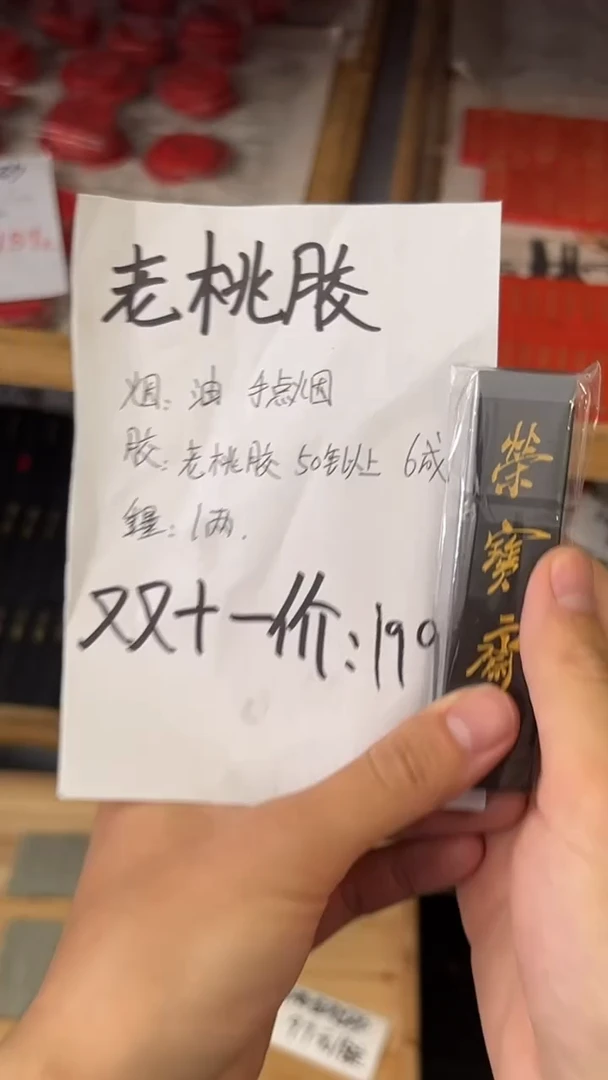 老桃胶
烟: 油 手点烟
胶: 老桃胶 50年以上 6成
量: 1两.
双十一价: 190
榮寶齋